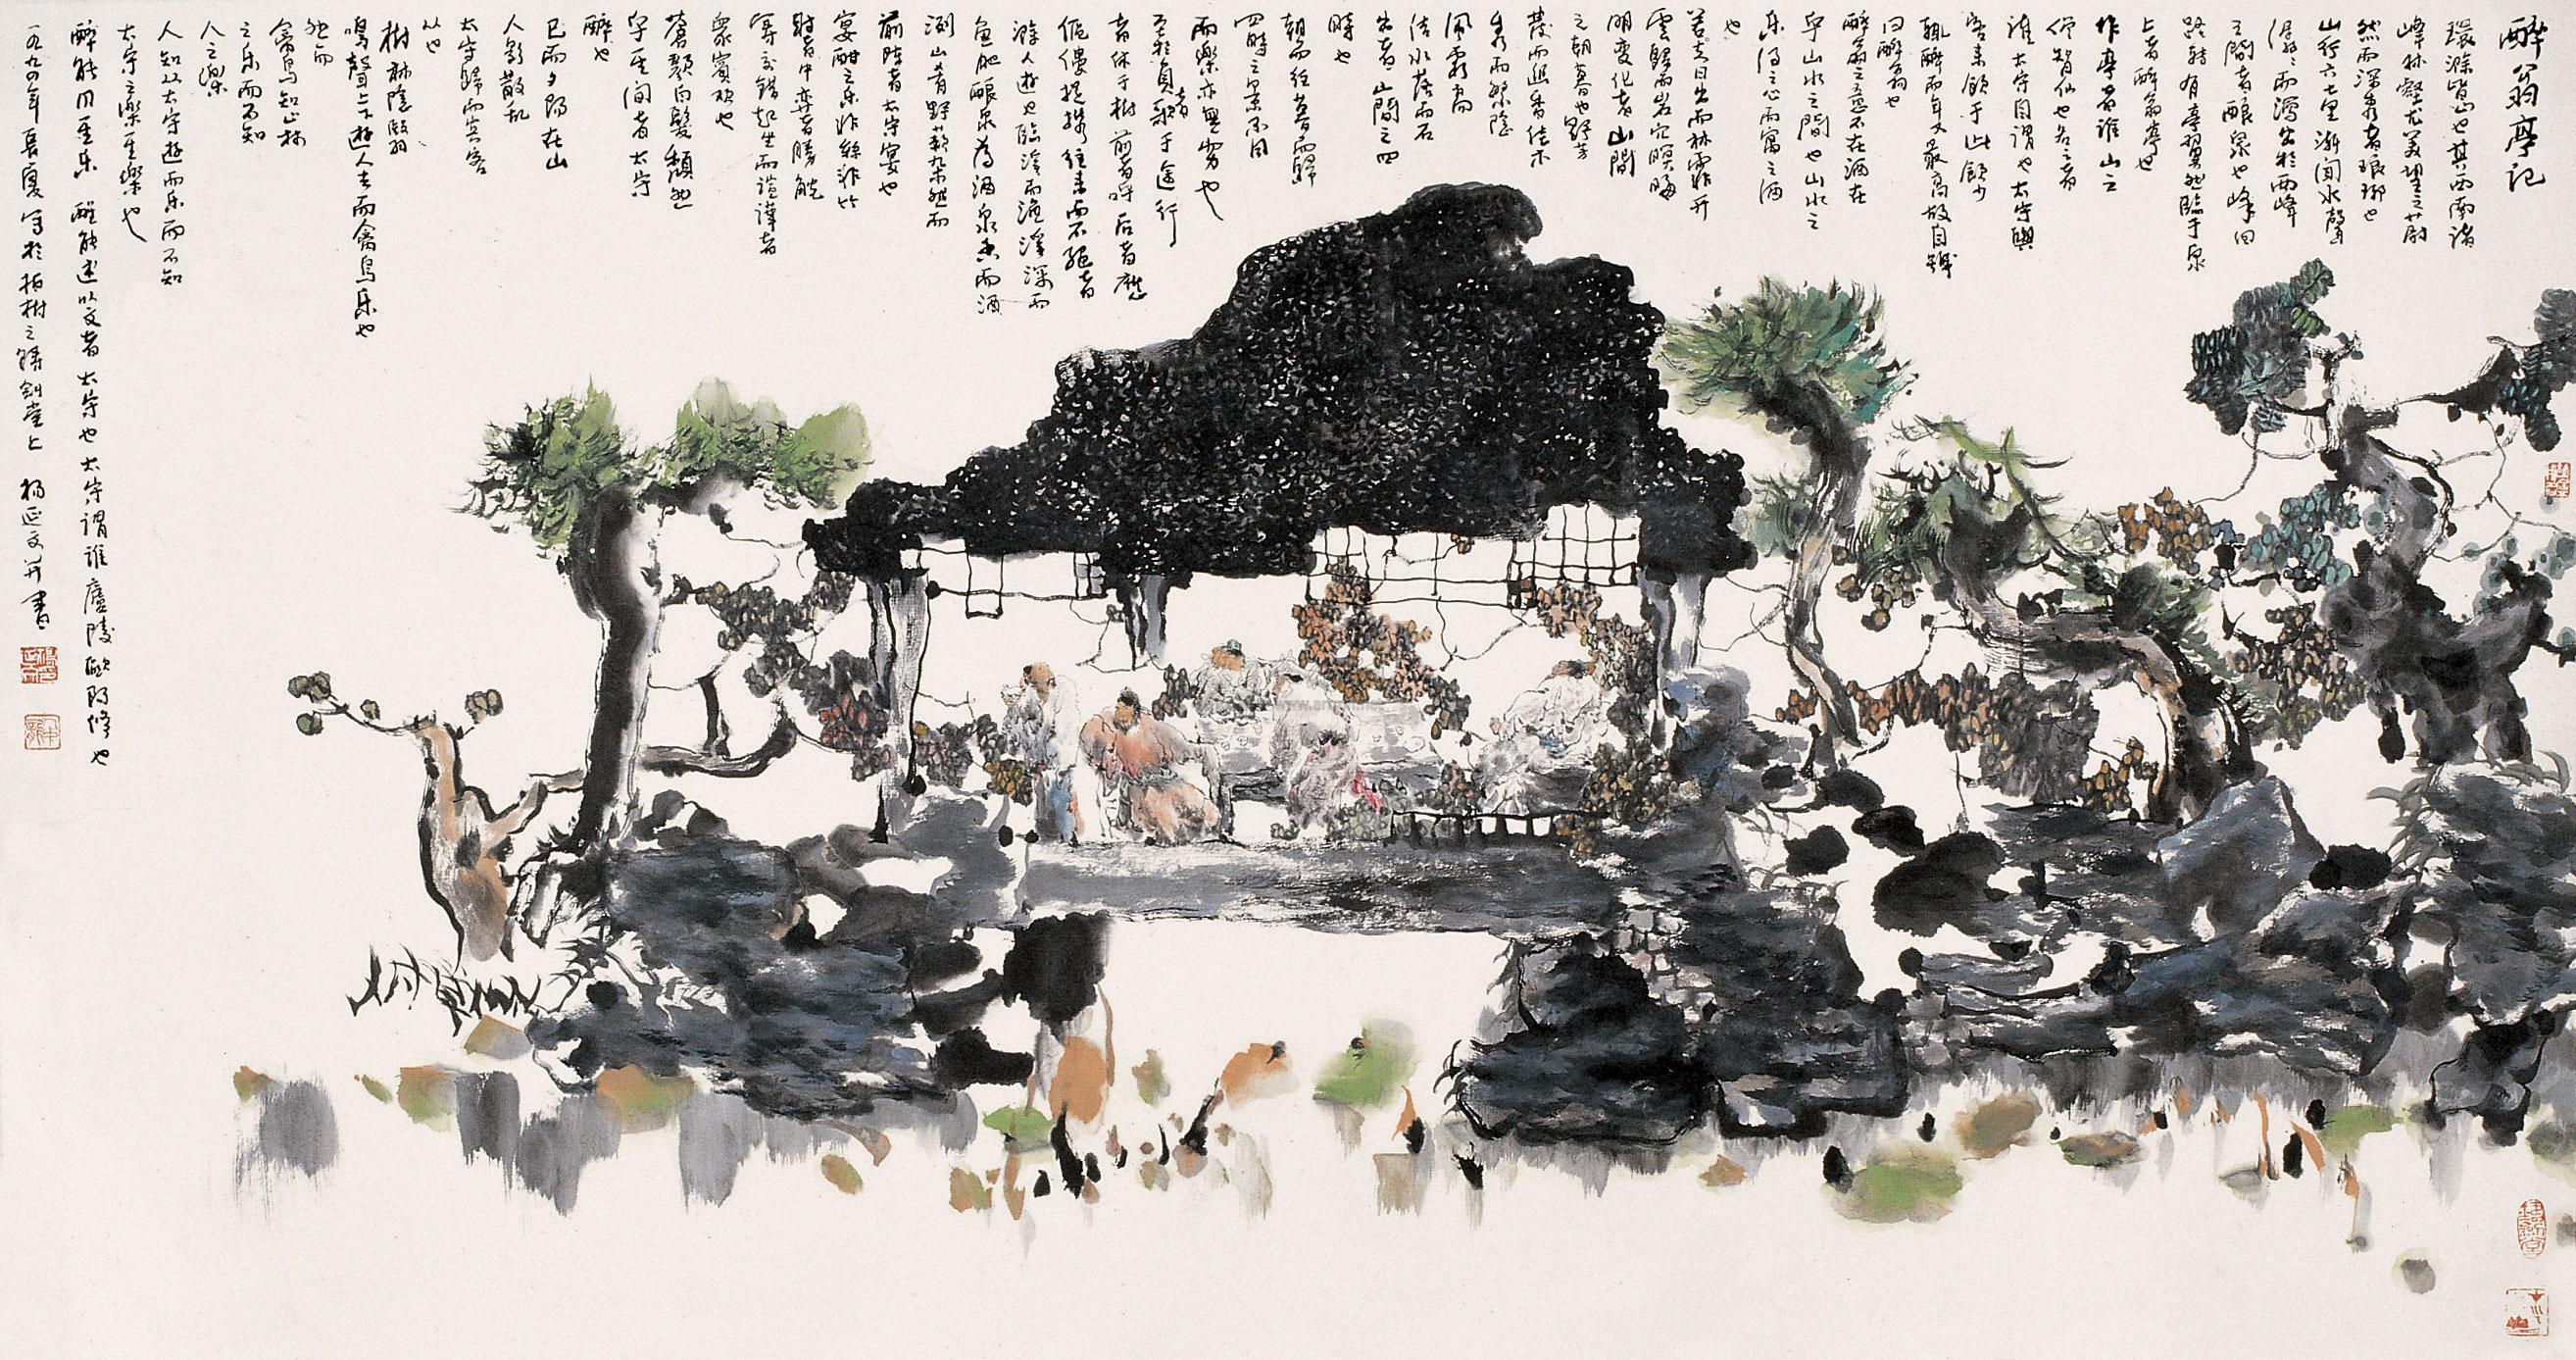 醉翁亭记
環滁皆山也其西南諸
峰林壑尤美望之蔚
然而深秀者琅琊也
山行六七里漸闻水聲
潺潺而瀉出於兩峰
之間者釀泉也峰回
路轉有亭翼然臨于泉
上者醉翁亭也
作亭者谁山之
僧智仙也名之者
谁太守自谓也太守與
客来飲于此飲少
輒醉而年又最高故自號
曰醉翁也
醉翁之意不在酒在
乎山水之間也山水之
乐得之心而寓之酒
也
若夫日出而林霏开
雲歸而岩穴暝晦
明变化者山間
之朝暮也野芳
發而幽香佳木
秀而繁陰
風霜高
洁水落而石
出者山間之四
時也
朝而往暮而歸
四時之景不同
而樂亦無穷也
至於負者歌于途行
者休于树前者呼后者應
伛偻提携往来而不绝者
滁人遊也臨溪而漁溪深而
魚肥釀泉为酒泉香而酒
洌山肴野蔌杂然而
前陳者太守宴也
宴酣之乐非絲非竹
射者中弈者勝觥
筹交錯起坐而諠譁者
衆賓欢也
蒼颜白髮頹然
乎其间者太守
醉也
已而夕陽在山
人影散乱
太守歸而宾客
从也
树林陰翳
鳴聲上下遊人去而禽鸟乐也
然而
禽鸟知山林
之乐而不知
人之樂
人知从太守遊而乐而不知
太守之樂其樂也
醉能同其乐醒能述以文者太守也太守谓谁廬陵歐阳修也
一九九四年長夏写於柏树之鑄劍堂上 杨延文并書